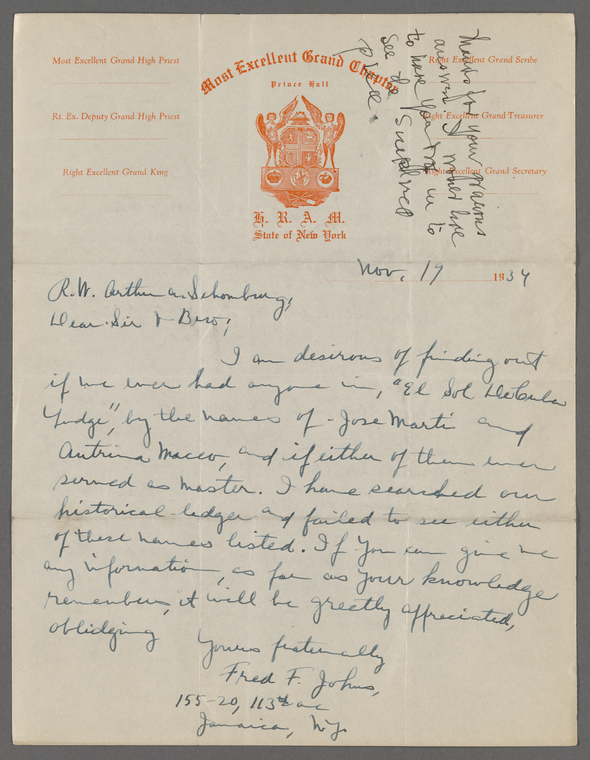 Most Excellent Grand High Priest
Rt. Ex. Deputy Grand High Priest
Right Excellent Grand King
Most Excellent Grand Chapter
Prince Hall
H. R. A. M.
State of New York
Right Excellent Grand Scribe
Right Excellent Grand Treasurer
Right Excellent Grand Secretary
Thanks for your gracious
answer. I would like
to have you in to
see the
place.
Nov. 19 1934
R.W. Arthur A. Schomburg,
Dear Sir & Bro;
I am desirous of finding out
if we ever had anyone in, "El Sol De Cuba
Lodge", by the names of - Jose Marti and
Antrina Maceo, and if either of them ever
served as Master. I have searched our
historical ledger and failed to see either
of these names listed. If you can give me
any information, as far as your knowledge
remembers, it will be greatly appreciated,
oblidging
Yours fraternally
Fred F. Johns,
155-20, 113th ave
Jamaica, N.Y.